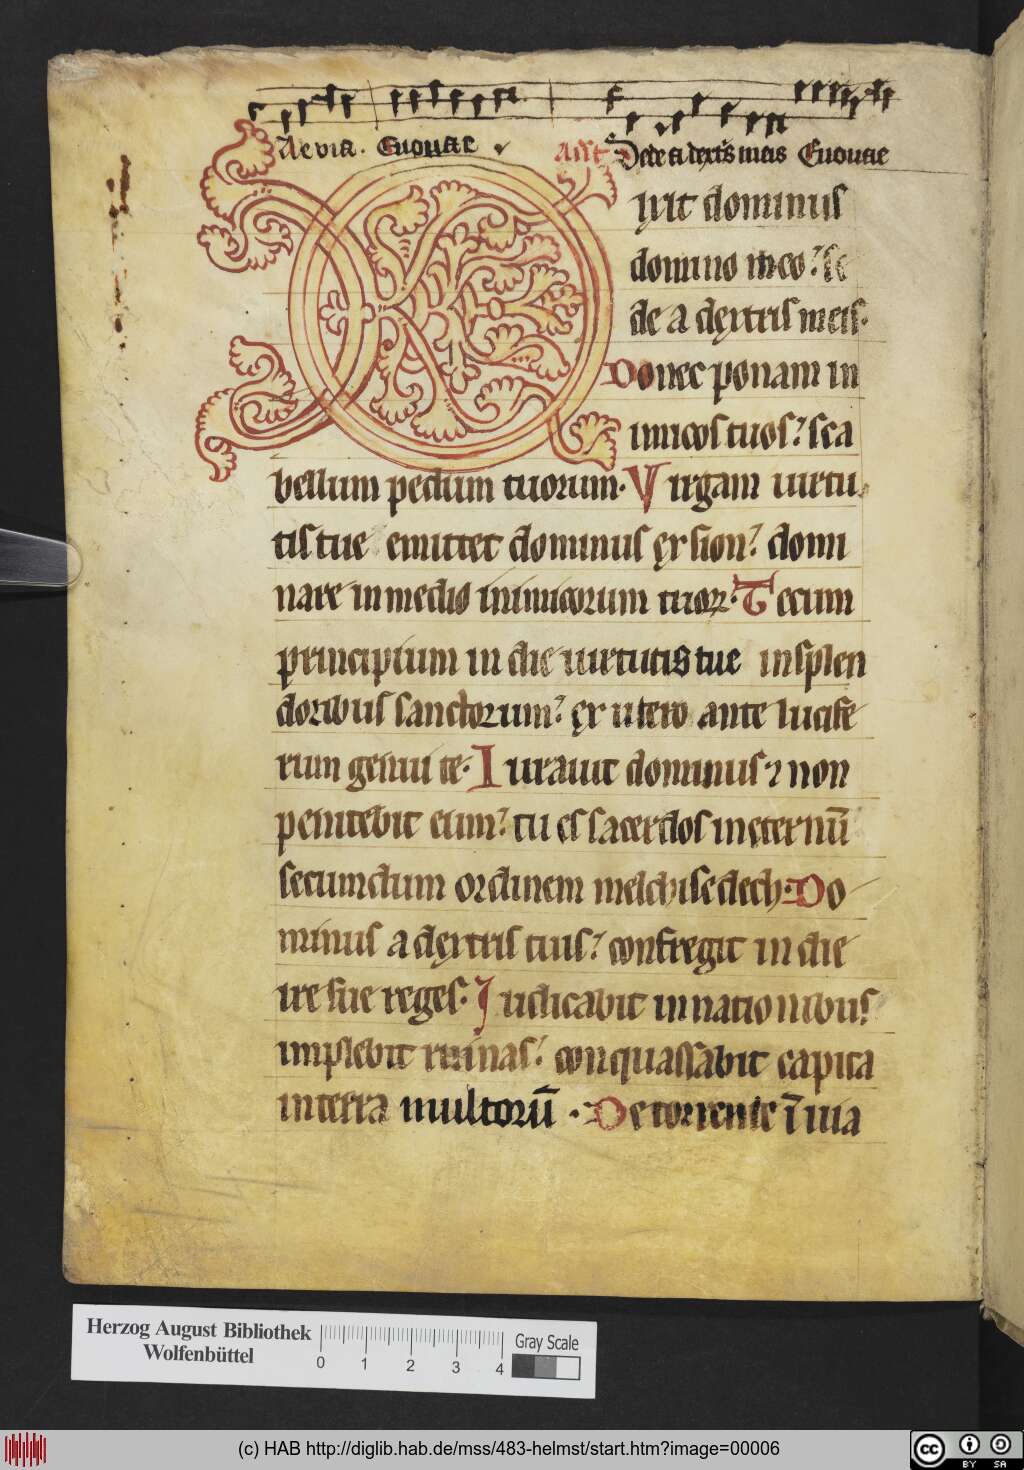 Aevia. Euouae Ant Sede a dextris meis Euouae
Dixit dominus
domino meo: se
de a dęxtris meis.
Donec ponam in
imicos tuos: sca
bellum pedum tuorum. Virgam uirtu
tis tue emittet dominus ęx sion: domi
nare in medio inimicorum tuoꝝ. Tecum
principium in die uirtutis tue in splen
doribus sanctorum: ęx utero ante lucife
rum genui te. Iurauit dominus ⁊ non
penitebit eum: tu es sacerdos in ęternū
secundum ordinem melchisedech. Do
minus a dęxtris tuis: confregit in die
ire sue reges. Iudicabit in nationibus
implebit ruinas: conquassabit capita
in terra multorū. De torrente ī uia
Herzog August Bibliothek
Wolfenbüttel
0 1 2 3 4
Gray Scale
(c) HAB http://diglib.hab.de/mss/483-helmst/start.htm?image=00006
cc BY SA